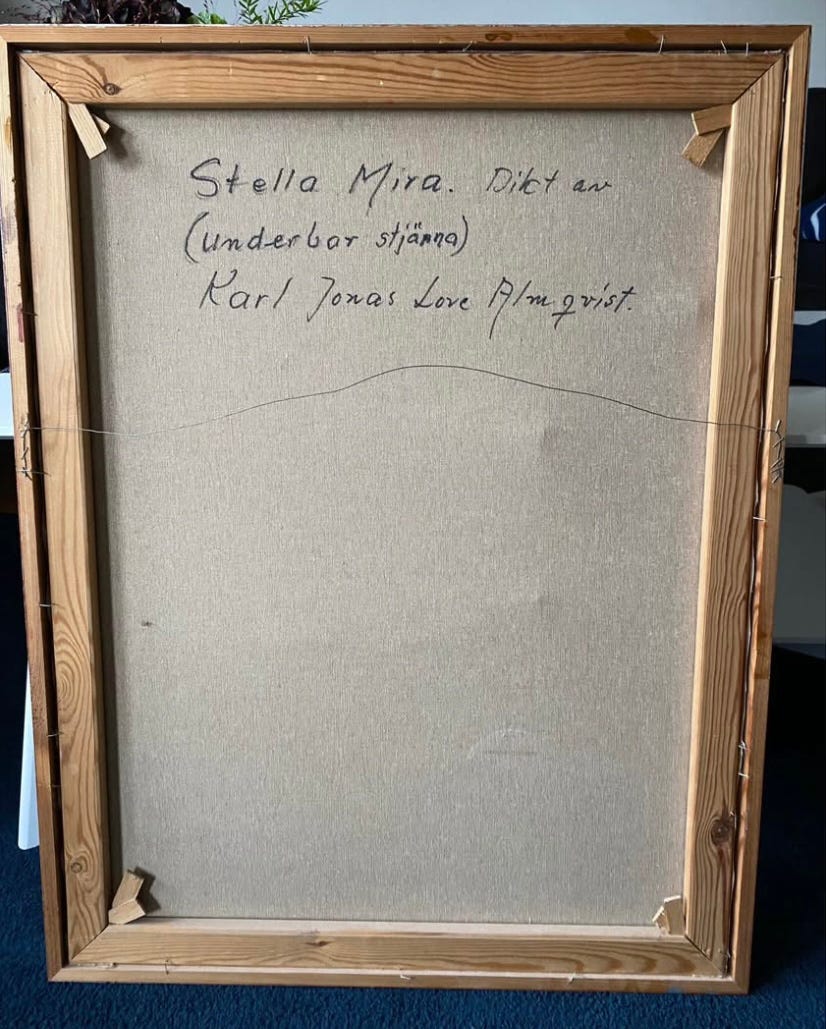 Stella Mira. Dikt av
(underbar stjärna)
Karl Jonas Love Almqvist.